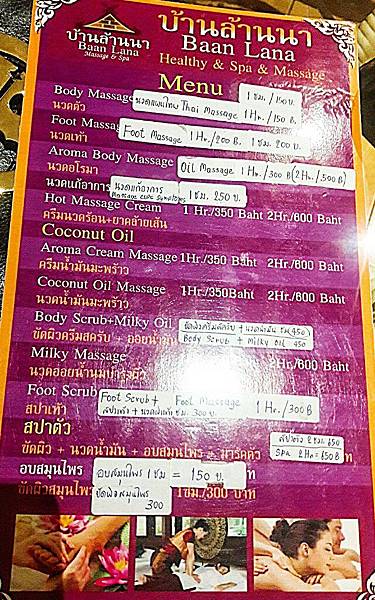 บ้านล้านนา
Baan Lana
Massage & Spa
บ้านล้านนา
Baan Lana
Healthy & Spa & Massage
Menu
Body Massage นวดแผนไทย Thai Massage 1 Hr./150 B.
1 ชม. /150 บ.
นวดตัว
Foot Massa Foot Massage 1 Hr./200 B. 1 ชม. 200 บาท
นวดเท้า
Aroma Body Massage Oil Massage 1 Hr. /300 B (2 Hr./500 B)
นวดอโรมา
นวดแก้อาการ นวดแก้อาการ 1 ชม. 250 บาท
Hot Massage Cream 1 Hr./350 Baht 2Hr./600 Baht
ครีมนวดร้อน+ยาคล้ายเส้น
Coconut Oil
Aroma Cream Massage 1Hr./350 Baht 2Hr./600 Baht
ครีมน้ำมันมะพร้าว
Coconut Oil Massage 1Hr./350Baht 2Hr./600 Baht
นวดน้ำมันมะพร้าว
Body Scrub+Milky Oil
ขัดผิวครีมสครับ + ออยน้ำมัน Body Scrub + Milky Oil 450
Milky Massage 2Hr./600 Baht
Foot Scrub Foot Scrub + Foot Massage 1 Hr./300 B
สปาเท้า 300 บ.
สปาตัว
สปาตัว 2 ชม. 650
ขัดผิว + นวดน้ำมัน + อบสมุนไพร + มาร์คตัว Spa 2 Hr = 650 B
อบสมุนไพร อบสมุนไพร 1 ชม = 150 บ. ท
ขัดผิวสมุนไพร ขัดผิวสมุนไพร 300 1ชม./300 บาท